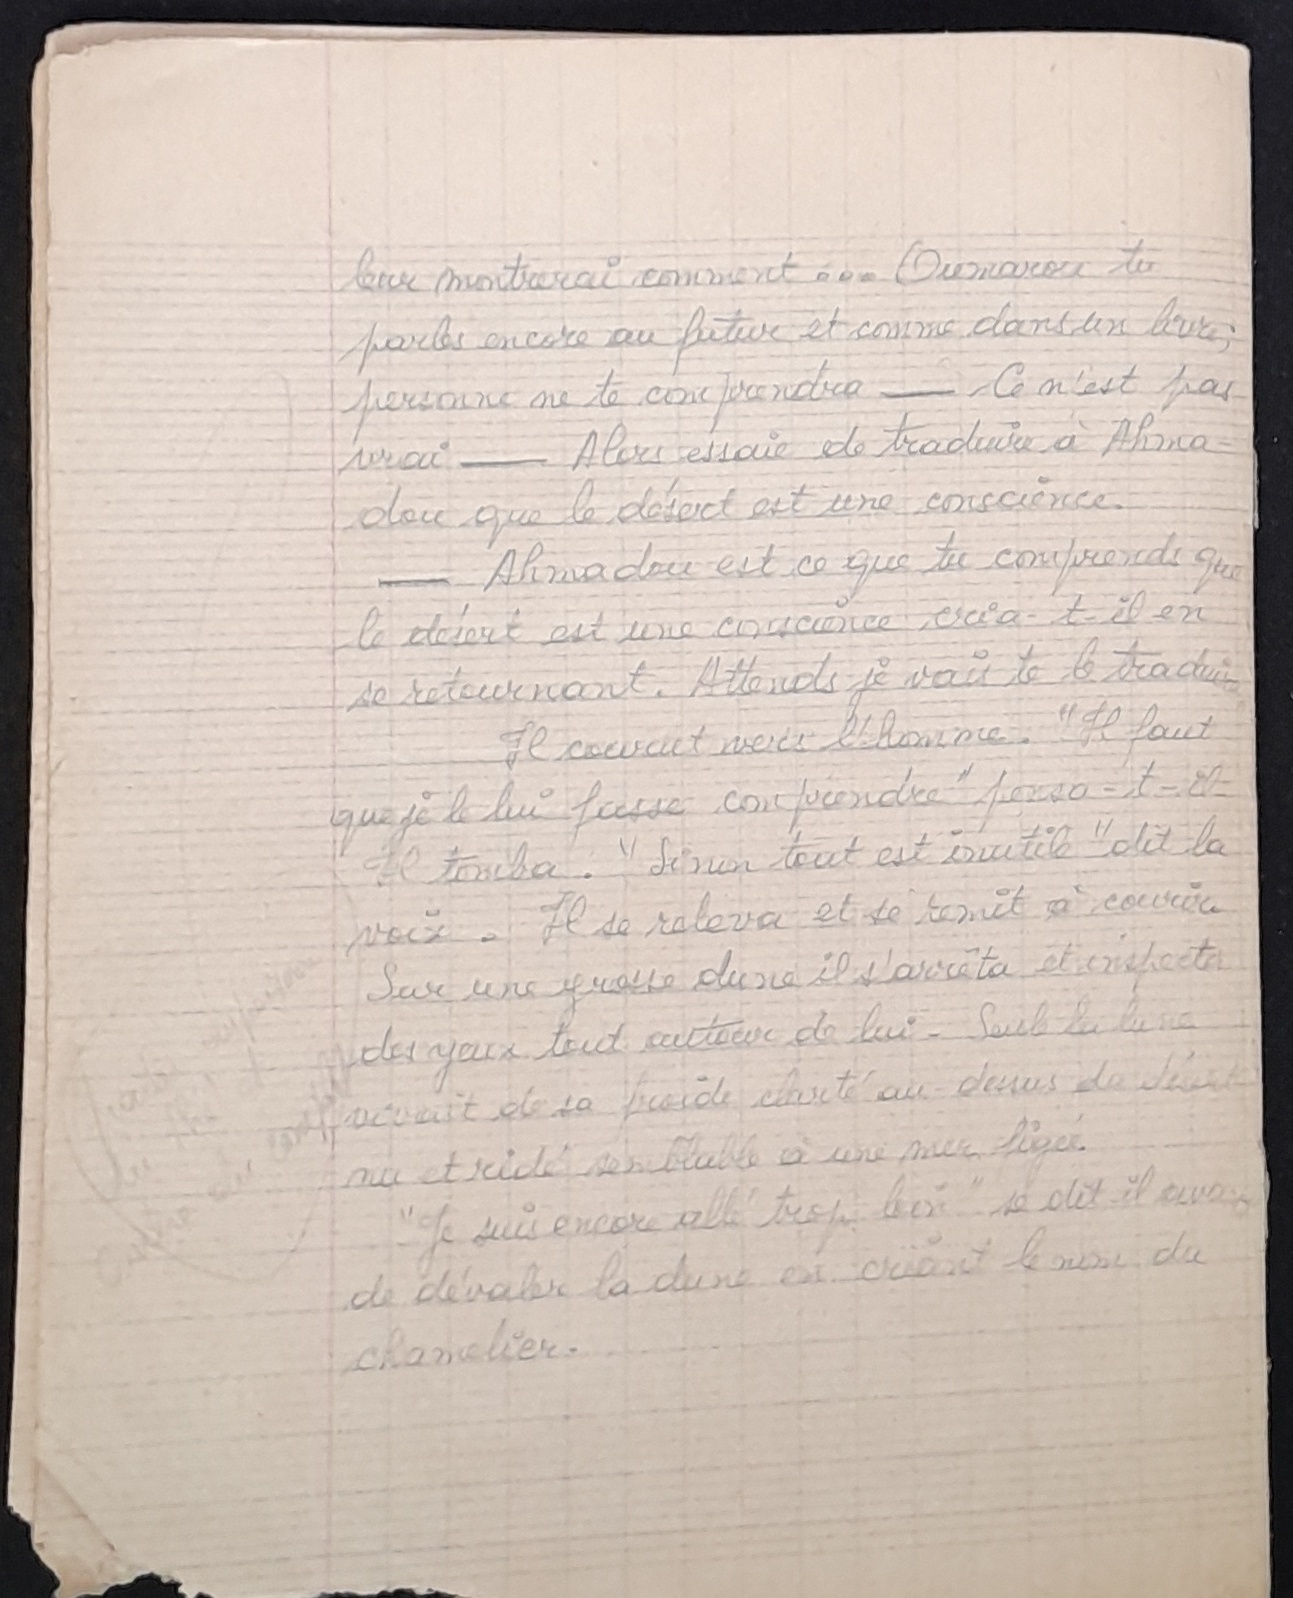 leur montrerai comment ... Oumarou tu
parles encore au futur et comme dans un livre,
personne ne te comprendra — Ce n'est pas
vrai — Alors essaie de traduire à Ahma-
dou que le désert est une conscience.
— Ahmadou est ce que tu comprends que
le désert est une conscience cria-t-il en
se retournant. Attends je vais te le traduire
Il courut vers l'homme. "Il faut
que je le lui fasse comprendre" pensa-t-il
Il tomba. "Sinon tout est inutile" dit la
voix. Il se releva et se remit à courir
Sur une grosse dune il s'arrêta et inspecta
des yeux tout autour de lui. Seule la lune
vivait de sa froide clarté au-dessus du désert
nu et ridé semblable à une mer figée.
"Je suis encore allé trop loin" se dit il avant
de dévaler la dune en criant le nom du
chamelier.